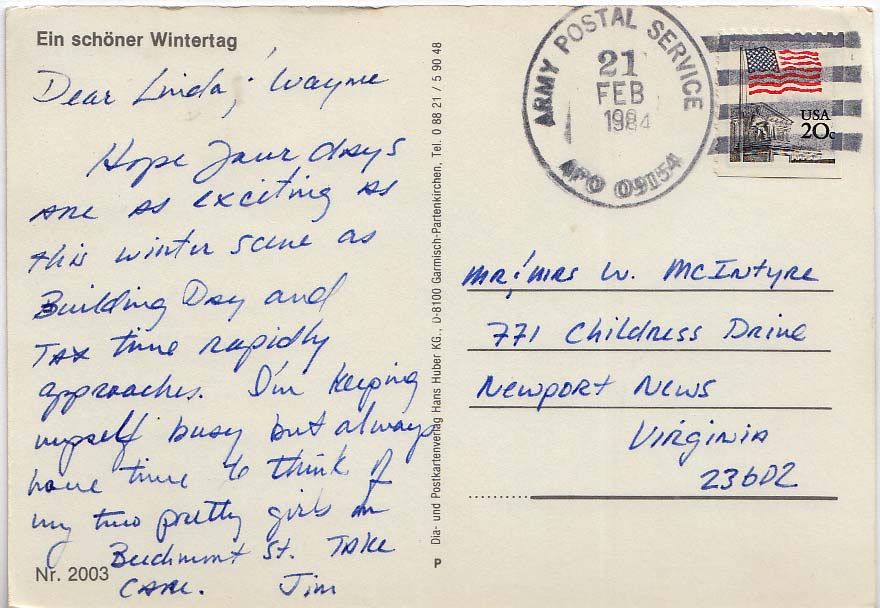 Ein schöner Wintertag
Dear Linda & Wayne
Hope your days
are as exciting as
this winter scene as
Building Day and
Tax time rapidly
approaches. I'm keeping
myself busy but always
have time to think of
my two pretty girls on
Beechmont St. Take
Care. Jim
Nr. 2003
Dia- und Postkartenverlag Hans Huber KG., D-8100 Garmisch-Partenkirchen, Tel. 0 88 21 / 5 90 48
P
ARMY POSTAL SERVICE
21
FEB
1984
APO 09154
USA
20c
Mr & Mrs W. McIntyre
771 Childress Drive
Newport News
Virginia
23602